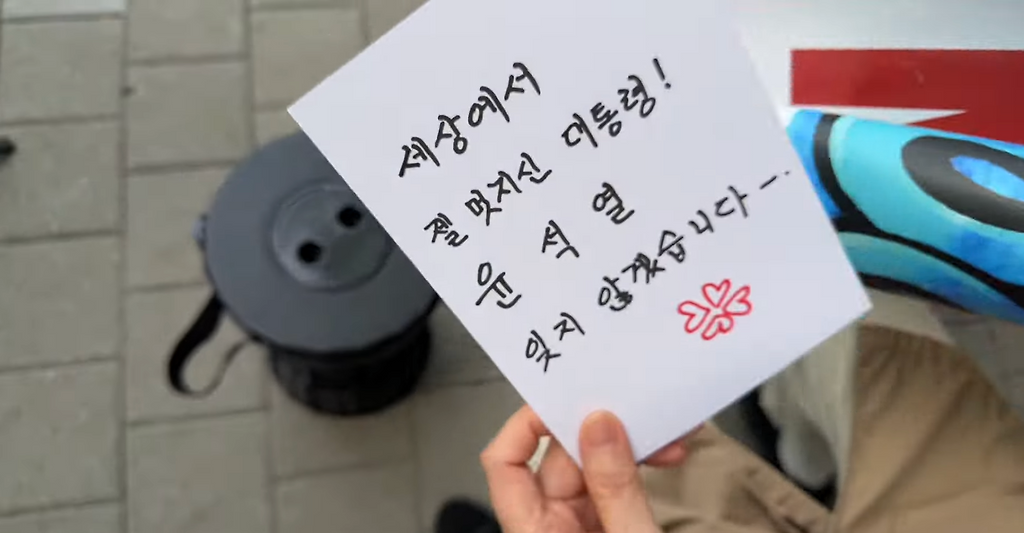 세상에서
젤 멋지신 대통령!
윤 석 열
잊지 않겠습니다-.